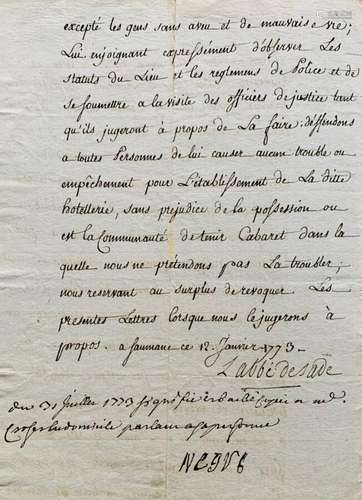 excepté les gens sans aveu et de mauvaise vie;
Lui enjoignant expressement d'observer Les
statuts du Lieu et les reglemens de Police et de
se soumettre a la visite des officiers de justice tant
qu'ils jugeront à propos de La faire: deffendons
a toutes Personnes de lui causer aucun trouble ou
empêchement pour L'établissement de La ditte
hotellerie, sans prejudice de la possession ou
est la Communauté de tenir Cabaret dans la
quelle nous ne pretendons pas La troubler;
nous reservant au surplus de revoquer Les
presentes Lettres lorsque nous le jugerons à
propos. a saumane ce 12 Janvier 1773 -
L'abbé de sade
du 31 Juillet 1773 signifié et baillé Copie
domicile parlant a sa personne